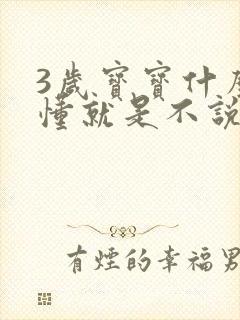 3歲寶寶什
懂就是不說
有煙的幸福男